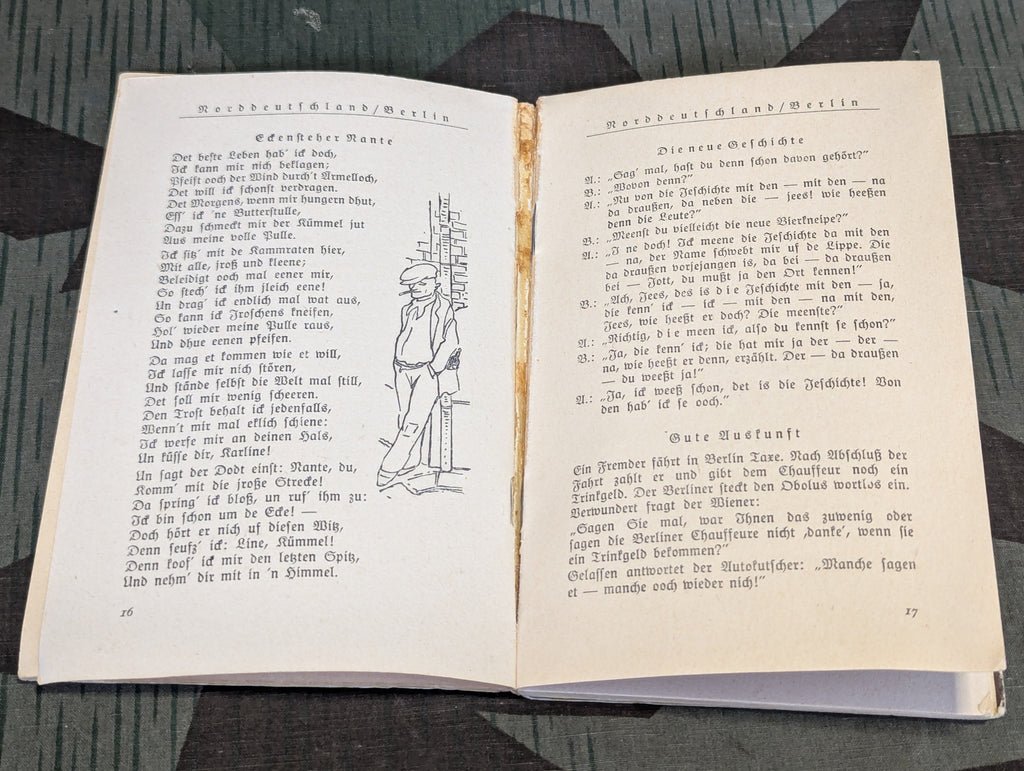 Norddeutschland/Berlin
Eckensteher Nante
Det beste Leben hab' ick doch,
Ick kann mir nich beklagen;
Pfeift ooch der Wind durch't Ärmelloch,
Det will ick schonst verdragen.
Det Morgens, wenn mir hungern dhut,
Ess' ick 'ne Butterstulle,
Dazu schmeckt mir der Kümmel jut
Aus meine volle Pulle.
Ick sitz' mit de Kammraten hier,
Mit alle, jroß und kleene;
Beleidigt ooch mal eener mir,
So stech' ick ihm jleich eene!
Un drag' ick endlich mal wat aus,
So kann ick Jroschens kneifen,
Hol' wieder meine Pulle raus,
Und dhue eenen pfeifen.
Da mag et kommen wie et will,
Ick lasse mir nich stören,
Und stände selbst die Welt mal still,
Det soll mir wenig scheeren.
Den Trost behalt ick jedenfalls,
Wenn't mir mal eklich schiene:
Ick werfe mir an deinen Hals,
Un küsse dir, Karline!
Un sagt der Dodt einst: Nante, du,
Komm' mit die jroße Strecke!
Da spring' ick bloß, un ruf' ihm zu:
Ick bin schon um de Ecke! —
Doch hört er nich uf diesen Witz,
Denn seufz' ick: Line, Kümmel!
Denn koof' ick mir den letzten Spitz,
Und nehm' dir mit in 'n Himmel.
16
Norddeutschland/Berlin
Die neue Geschichte
A.: „Sag' mal, hast du denn schon davon gehört?"
B.: „Wovon denn?"
A.: „Nu von die Jeschichte mit den — mit den — na
da draußen, da neben die — jees! wie heeßen
denn die Leute?"
B.: „Meenst du vielleicht die neue Bierkneipe?"
A.: „I ne doch! Ick meene die Jeschichte da mit den
— na, der Name schwebt mir uf de Lippe. Die
da draußen vorjesangen is, da bei — da draußen
bei — Jott, du mußt ja den Ort kennen!"
B.: „Ach, Jees, des is die Jeschichte mit den — ja,
die kenn' ick — ick — mit den — na mit den,
Jees, wie heeßt er doch? Die meenste?"
A.: „Richtig, die meen ick, also du kennst se schon?"
B.: „Ja, die kenn' ick; die hat mir ja der — der —
na, wie heeßt er denn, erzählt. Der — da draußen
— du weeßt ja!"
A.: „Ja, ick weeß schon, det is die Jeschichte! Von
den hab' ick se ooch."
Gute Auskunft
Ein Fremder fährt in Berlin Taxe. Nach Abschluß der
Fahrt zahlt er und gibt dem Chauffeur noch ein
Trinkgeld. Der Berliner steckt den Obolus wortlos ein.
Verwundert fragt der Wiener:
„Sagen Sie mal, war Ihnen das zuwenig oder
sagen die Berliner Chauffeure nicht ‚danke', wenn sie
ein Trinkgeld bekommen?"
Gelassen antwortet der Autokutscher: „Manche sagen
et — manche ooch wieder nich!"
17